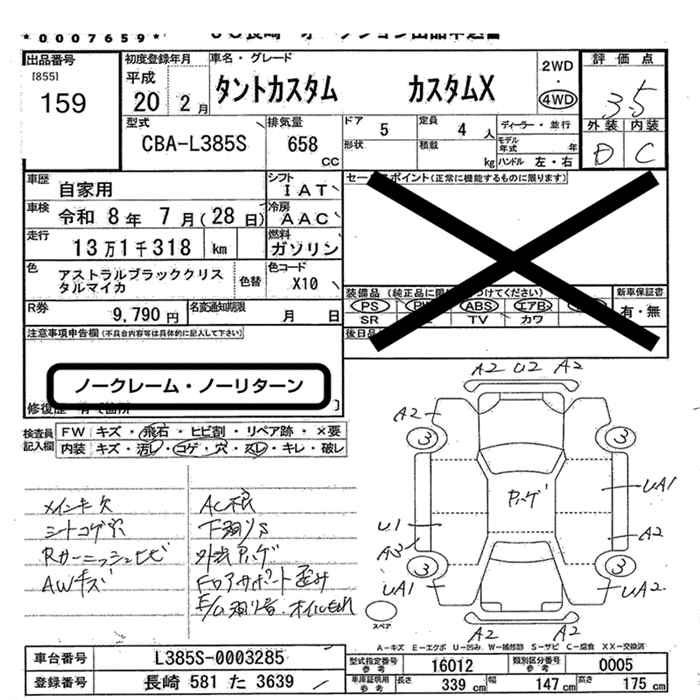 *0007659*
出品番号
[855]
159
初度登録年月
平成
20 2月
車名・グレード
タントカスタム カスタムX
2WD
・
4WD
評価点
3.5
外装 内装
D C
型式
CBA-L385S
排気量
658
CC
ドア 5
形状
定員 4人
積載 kg
ディーラー・並行
モデル年式 年
ハンドル 左・右
車歴 自家用
シフト IAT
車検 令和 8年 7月(28日)
冷房 AAC
走行 13万1千318 km
燃料 ガソリン
色 アストラルブラッククリスタルマイカ
色替
色コード X10
R券 9,790円
名変通知期限 月 日
セー ポイント(正常に機能するものに限ります)
装備品 (純正品に つけてください)
PS ABS エアB
SR TV カワ
新車保証書
有・無
後日品
注意事項申告欄(不具合内容等は具体的に記入して下さい)
ノークレーム・ノーリターン
修復歴
検査員記入欄
FW キズ・飛石・ヒビ割・リペア跡・×要
内装 キズ・汚レ・コゲ・穴・スレ・キレ・破レ
メインキー欠
シートコゲ穴
Rガーニッシュヒビ
AWキズ
下廻りS
外装パーゲ
E/G廻り音、オイルもれ
A2 U2 A2
A2
3 3
パーゲ
UA1
U1
A2
A3
3 3
UA1
UA2
A2 A2
スペア
A-キズ E-エクボ U-凹み W-補修跡 S-サビ C-腐食 XX-交換済
車台番号 L385S-0003285
登録番号 長崎 581 た 3639
型式指定番号 参考 16012
類別区分番号 参考 0005
車庫証明用 参考 長さ 339 cm 幅 147 cm 高さ 175 cm